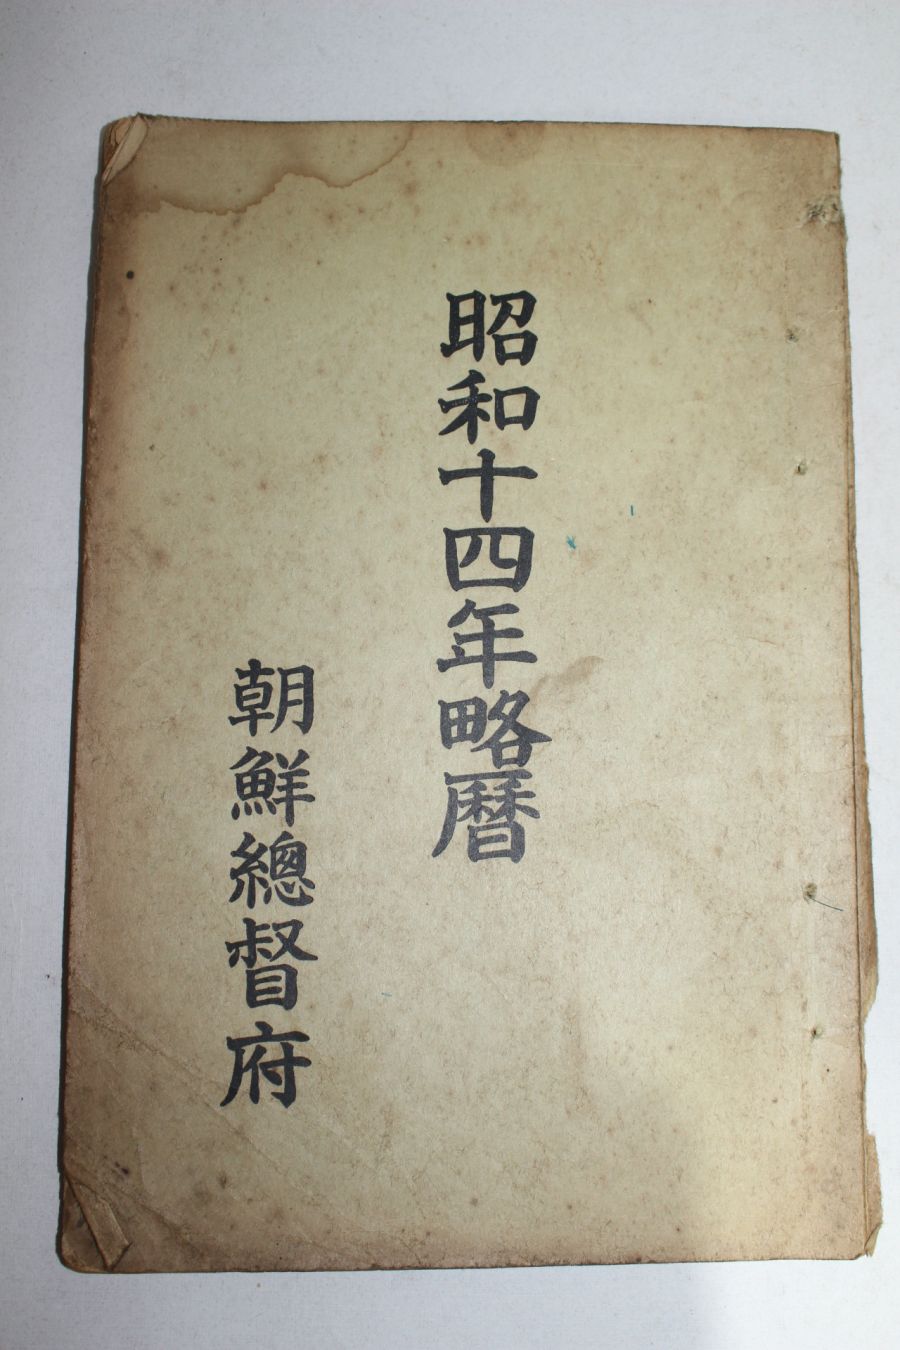 昭和十四年略曆
朝鮮總督府